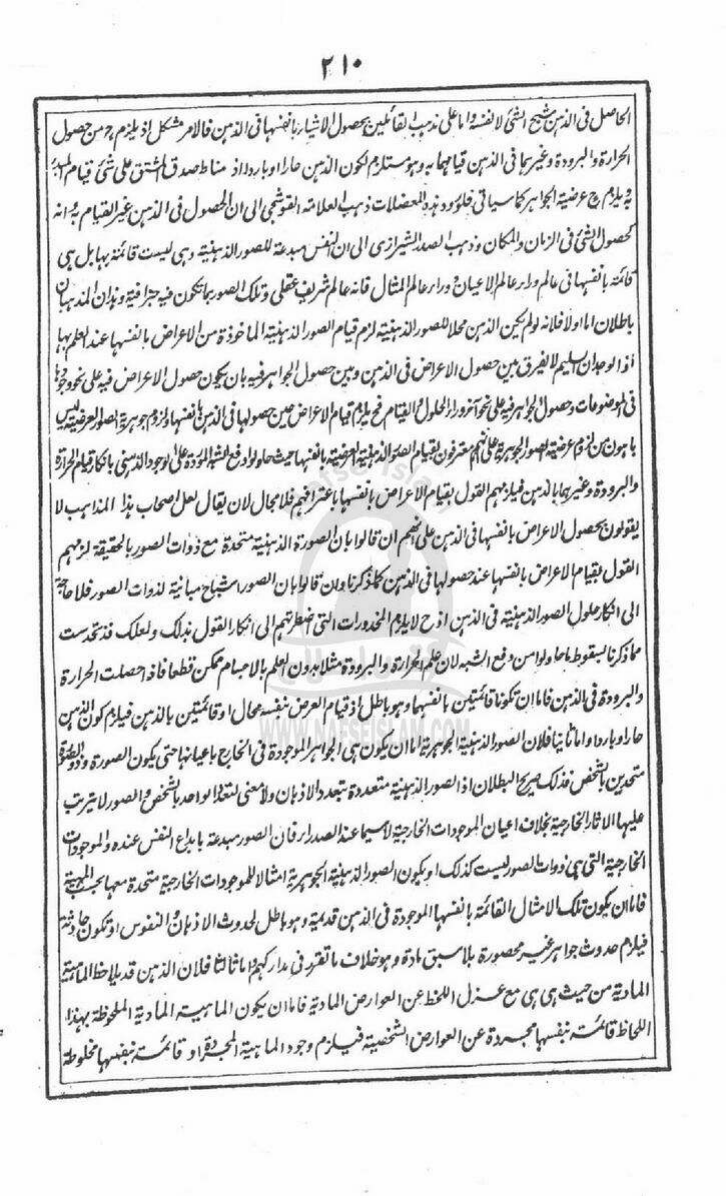 ٢١٠
الحاصل فى الذهن شبح الشئ لا نفسه واما على مذهب القائلين بحصول الاشياء بانفسها فى الذهن فالامر مشكل اذ يلزم ح من حصول
الحرارة والبرودة وغيرهما فى الذهن قيامهما به وهو مستلزم لكون الذهن حارا وباردا اذ مناط صدق المشتق على شئ قيام المبدء
به ويلزم ح عرضية الجواهر كما سياتى فلورود هذه المعضلات ذهب العلامه القوشجى الى ان الحصول فى الذهن غير القيام به وانه
كحصول الشئ فى الزمان والمكان وذهب الصدر الشيرازى الى ان النفس مبدعة للصور الذهنية وهى ليست قائمة بها بل هى
قائمة بانفسها فى عالم وراء عالم الاعيان ووراء عالم المثال فانه عالم شريف عقلى وتلك الصور بما تكون فيه جزافية وهذان المذهبان
باطلان اما اولا فلانه لو لم يكن الذهن محلا للصور الذهنية لزم قيام الصور الذهنية الماخوذة من الاعراض بانفسها عند العلم بها
اذ الوجدان السليم لا يفرق بين حصول الاعراض فى الذهن وبين حصول الجواهر فيه بان يكون حصول الاعراض فيه على نحو وجودها
فى الموضوعات وحصول الجواهر فيه على نحو آخر وراء الحلول والقيام فح يلزم قيام الاعراض حين حصولها فى الذهن بانفسها ولزوم جوهرية الصور العرضية ليس
باهون من لزوم عرضية الصور الجوهرية على انهم معترفون بقيام الصور الذهنية العرضية بانفسها حيث حاولوا دفع الشبه الموردة على الوجود الذهنى بانكار قيام الحرارة
والبرودة وغيرهما بالذهن فيلزمهم القول بقيام الاعراض بانفسها باعترافهم فلا مجال لان يقال لعل اصحاب هذا المذاهب لا
يقولون بحصول الاعراض بانفسها فى الذهن على انهم ان قالوا بان الصورة الذهنية متحدة مع ذوات الصور بالحقيقة لزمهم
القول بقيام الاعراض بانفسها عند حصولها فى الذهن كما ذكرنا وان قالوا بان الصور اشباح مباينة لذوات الصور فلا حاجة
الى انكار حلول الصور الذهنية فى الذهن اذ ح لا يلزم المحذورات التى اضطرتهم الى انكار القول بذلك ولعلك قد تحدست
مما ذكرنا لسقوط ما حاولوا من دفع الشبه لان علم الحرارة والبرودة مثلا بدون العلم بالاجسام ممكن قطعا فاذا حصلت الحرارة
والبرودة فى الذهن فاما ان تكونا قائمتين بانفسهما وهو باطل اذ قيام العرض بنفسه محال او قائمتين بالذهن فيلزم كون الذهن
حارا وباردا واما ثانيا فلان الصور الذهنية الجوهرية اما ان يكون هى الجواهر الموجودة فى الخارج باعيانها حتى يكون الصورة وذو الصورة
متحدين بالشخص فذلك صريح البطلان اذ الصور الذهنية متعددة بتعدد الاذهان ولا معنى لتعدد الواحد بالشخص والصور لا يترتب
عليها الآثار الخارجية بخلاف اعيان الموجودات الخارجية لا سيما عند الصدر فان الصور مبدعة بابداع النفس عنده والموجودات
الخارجية التى هى ذوات الصور ليست كذلك او يكون الصور الذهنية الجوهرية امثالا للموجودات الخارجية متحدة معها بحسب المهية
فاما ان يكون تلك الامثال القائمة بانفسها الموجودة فى الذهن قديمة وهو باطل لحدوث الاذهان والنفوس او تكون حادثة
فيلزم حدوث جواهر غير محصورة بلا سبق مادة وهو خلاف ما تقرر فى مداركهم واما ثالثا فلان الذهن قد يلاحظ الماهية
المادية من حيث هى هى مع عزل اللحظ عن العوارض المادية فاما ان يكون الماهية المادية الملحوظة بهذا
اللحاظ قائمة بنفسها مجردة عن العوارض الشخصية فيلزم وجود الماهية المجردة او قائمة بنفسها مخلوطة
Nafse Islam
WWW.NAFSEISLAM.COM